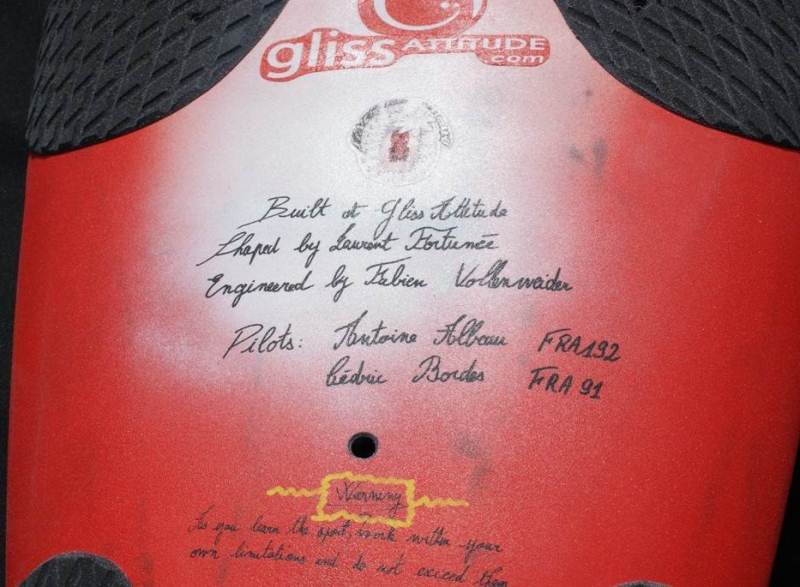 gliss ATTITUDE
.com
Built at Gliss Attitude
Shaped by Laurent Fortunée
Engineered by Fabien Vollenweider
Pilots: Antoine Albeau FRA192
Cédric Bordes FRA 91
Warning
As you learn the sport, work within your
own limitations and do not exceed them